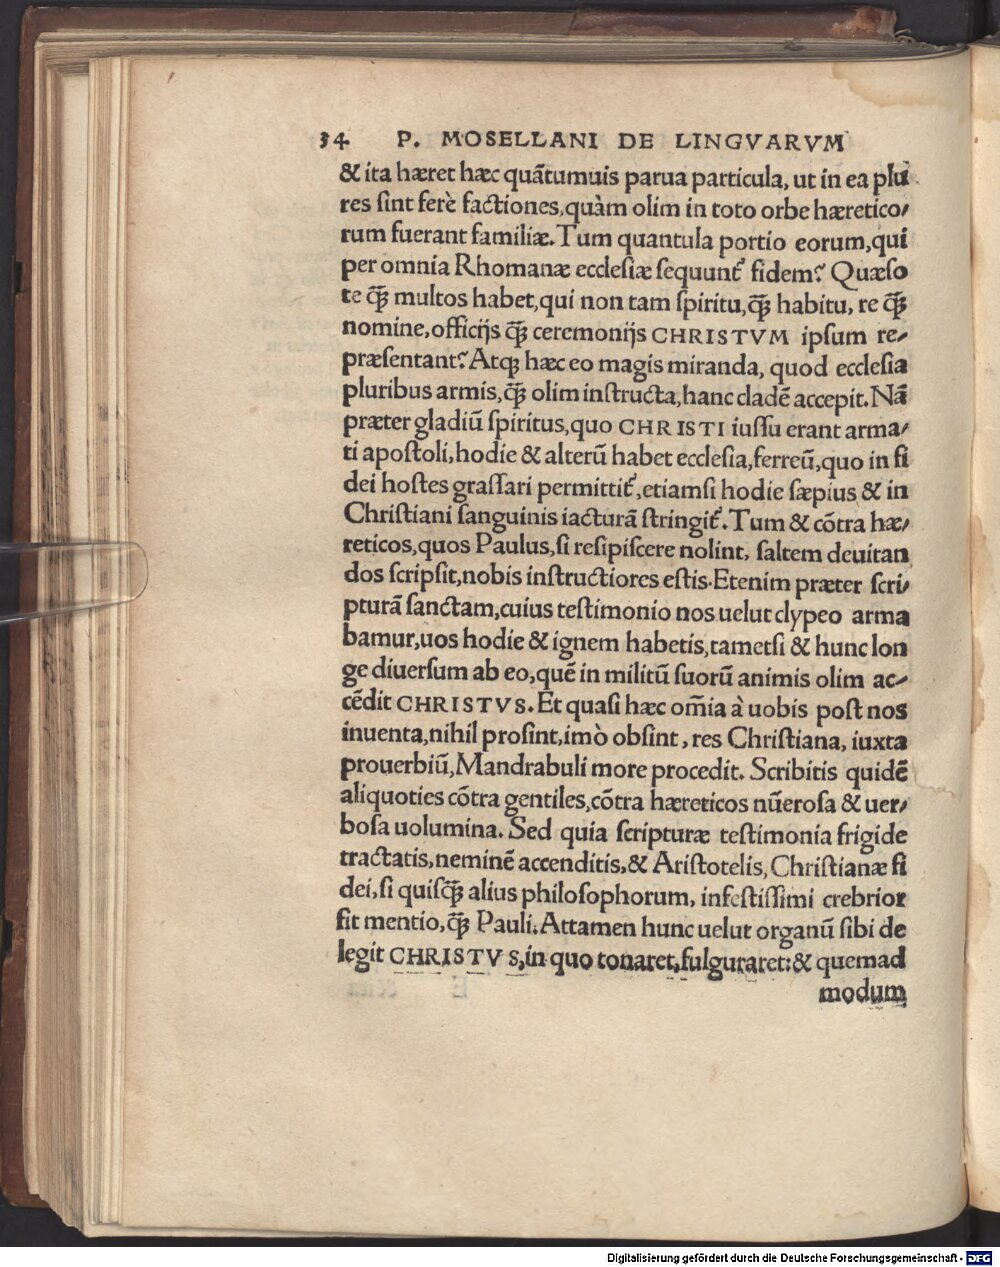 34 P. MOSELLANI DE LINGVARVM
& ita hæret hæc quãtumuis parua particula, ut in ea plu
res sint ferè factiones, quàm olim in toto orbe hæretico/
rum fuerant familiæ. Tum quantula portio eorum, qui
per omnia Rhomanæ ecclesiæ sequunt᷑ fidem? Quæso
te q̃ꝫ multos habet, qui non tam spiritu, q̃ꝫ habitu, re q̃ꝫ
nomine, officijs q̃ꝫ ceremonijs CHRISTVM ipsum re/
præsentant? Atqꝫ hæc eo magis miranda, quod ecclesia
pluribus armis, q̃ꝫ olim instructa, hanc cladẽ accepit. Nã
præter gladiũ spiritus, quo CHRISTI iussu erant arma/
ti apostoli, hodie & alterũ habet ecclesia, ferreũ, quo in fi
dei hostes grassari permittit᷑, etiamsi hodie sæpius & in
Christiani sanguinis iacturã stringit᷑. Tum & cõtra hæ/
reticos, quos Paulus, si resipiscere nolint, saltem deuitan
dos scripsit, nobis instructiores estis. Etenim præter scri/
pturã sanctam, cuius testimonio nos uelut clypeo arma
bamur, uos hodie & ignem habetis, tametsi & hunc lon
ge diuersum ab eo, quẽ in militũ suorũ animis olim ac/
cẽdit CHRISTVS. Et quasi hæc om̃ia à uobis post nos
inuenta, nihil prosint, imò obsint, res Christiana, iuxta
prouerbiũ, Mandrabuli more procedit. Scribitis quidẽ
aliquoties cõtra gentiles, cõtra hæreticos nũerosa & uer/
bosa uolumina. Sed quia scripturæ testimonia frigide
tractatis, neminẽ accenditis, & Aristotelis, Christianæ fi
dei, si quisq̃ꝫ alius philosophorum, infestissimi crebrior
fit mentio, q̃ꝫ Pauli. Attamen hunc uelut organũ sibi de
legit CHRISTVS, in quo tonaret, fulguraret: & quemad
modum
Digitalisierung gefördert durch die Deutsche Forschungsgemeinschaft - DFG